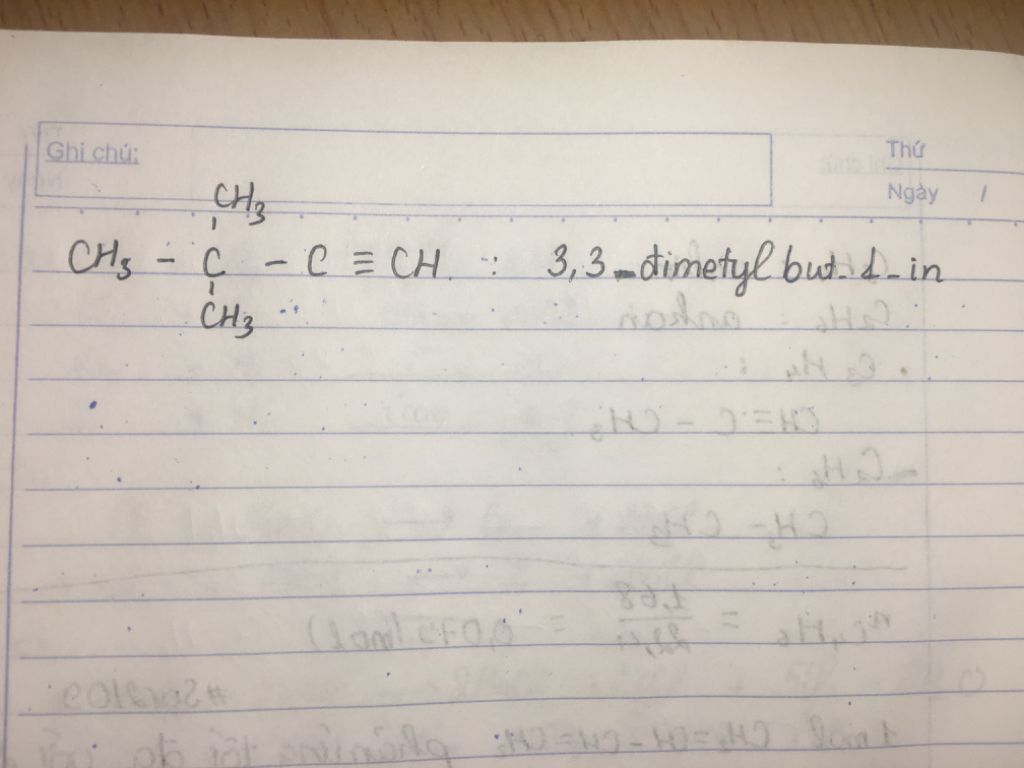 Ghi chú:
Thứ
Ngày /
CH₃
CH₃ - C - C ≡ CH : 3,3-đimetyl but-1-in
CH₃